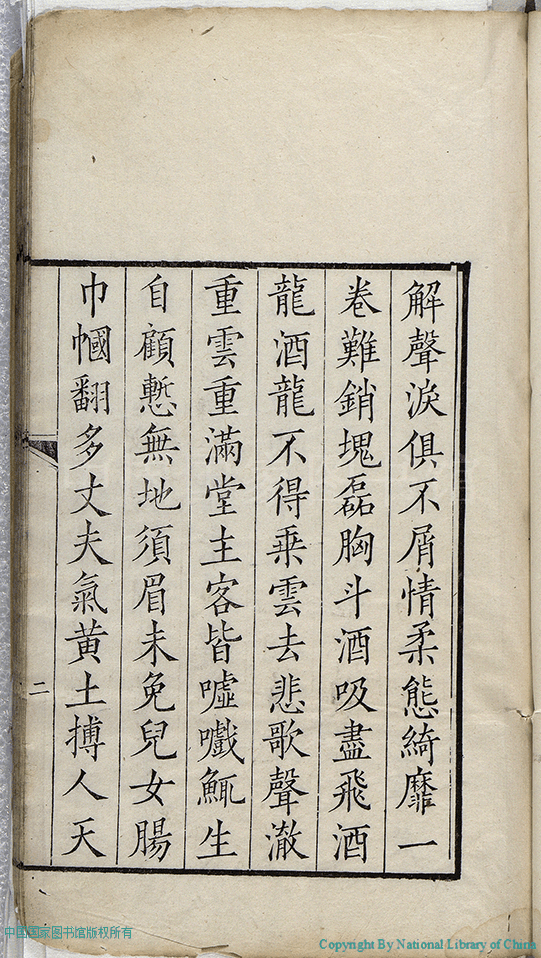 解聲淚俱不屑情柔態綺靡一
卷難銷塊磊胸斗酒吸盡飛酒
龍酒龍不得乗雲去悲歌聲澈
重雲重滿堂主客皆噓嚱鯫生
自顧慙無地須眉未免兒女腸
巾幗翻多丈夫氣黄土摶人天
二
中国国家图书馆版权所有
Copyright By National Library of China